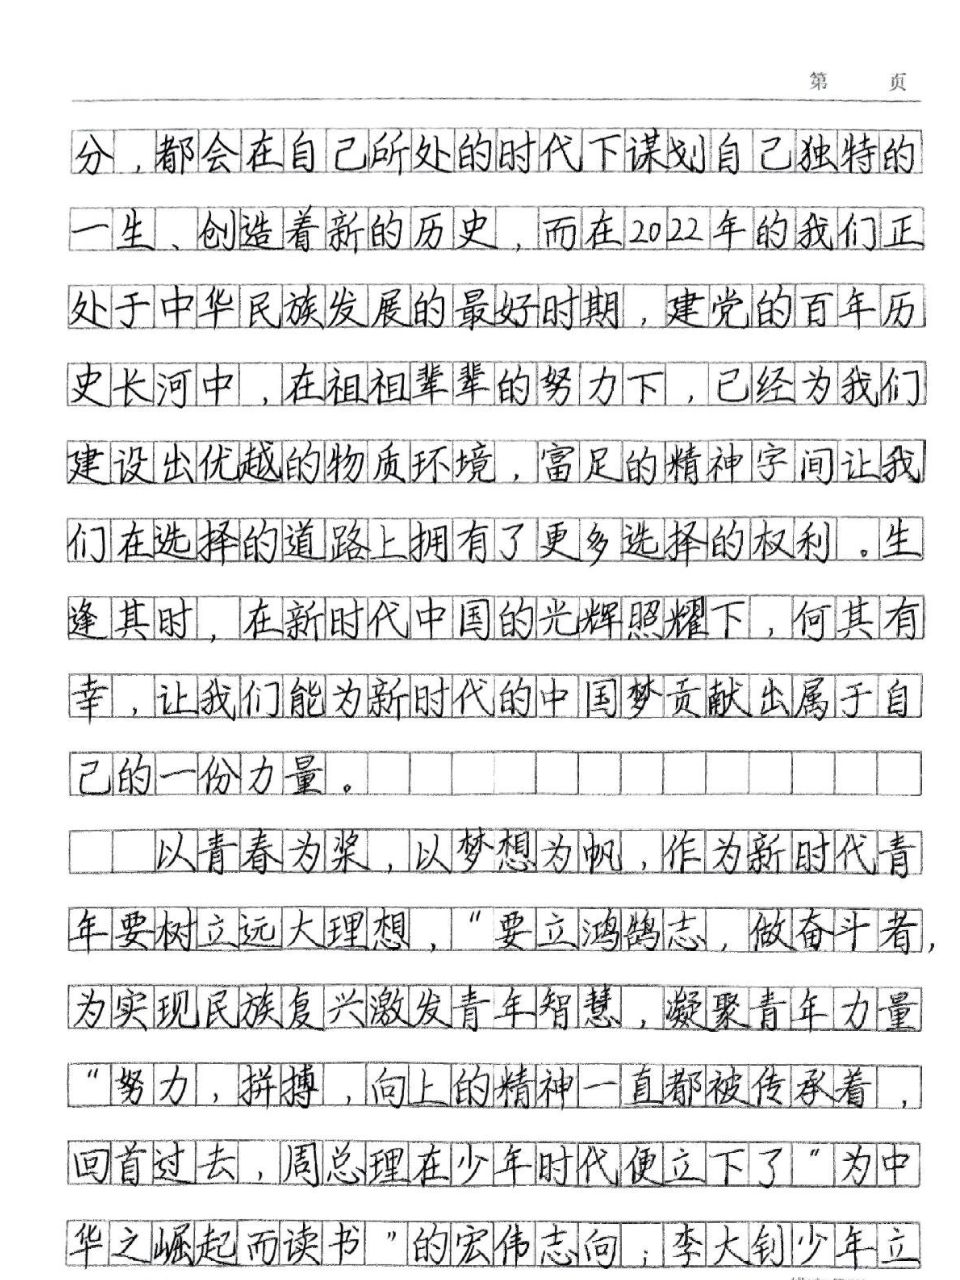 第 页
分，都会在自己所处的时代下谋划自己独特的
一生、创造着新的历史，而在2022年的我们正
处于中华民族发展的最好时期，建党的百年历
史长河中，在祖祖辈辈的努力下，已经为我们
建设出优越的物质环境，富足的精神字间让我
们在选择的道路上拥有了更多选择的权利。生
逢其时，在新时代中国的光辉照耀下，何其有
幸，让我们能为新时代的中国梦贡献出属于自
己的一份力量。
以青春为桨，以梦想为帆，作为新时代青
年要树立远大理想，"要立鸿鹄志，做奋斗者，
为实现民族复兴激发青年智慧，凝聚青年力量
"努力，拼搏，向上的精神一直都被传承着，
回首过去，周总理在少年时代便立下了"为中
华之崛起而读书"的宏伟志向；李大钊少年立